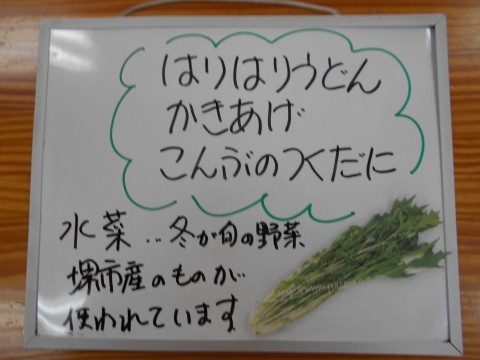 はりはりうどん
かきあげ
こんぶのつくだに
水菜‥冬が旬の野菜
堺市産のものが
使われています